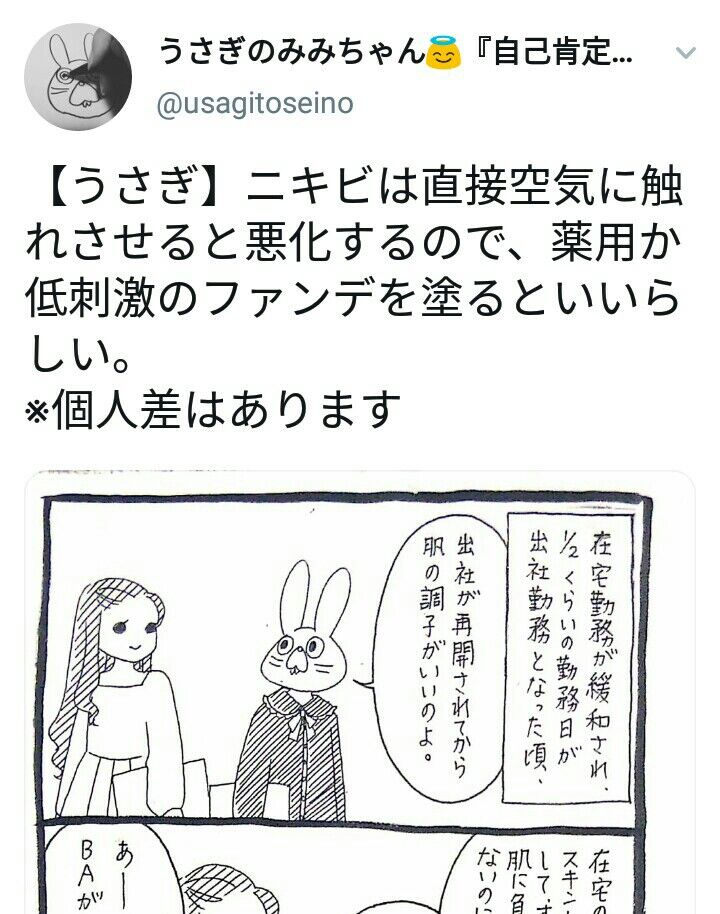 うさぎのみみちゃん😇『自己肯定...
@usagitoseino
【うさぎ】ニキビは直接空気に触
れさせると悪化するので、薬用か
低刺激のファンデを塗るといいら
しい。
※個人差はあります
在宅勤務が緩和され、
1/2くらいの勤務日が
出社勤務となった頃、
出社が再開されてから
肌の調子がいいのよ。
在宅の
スキン
して
肌に負
ないのに
あー
BAが